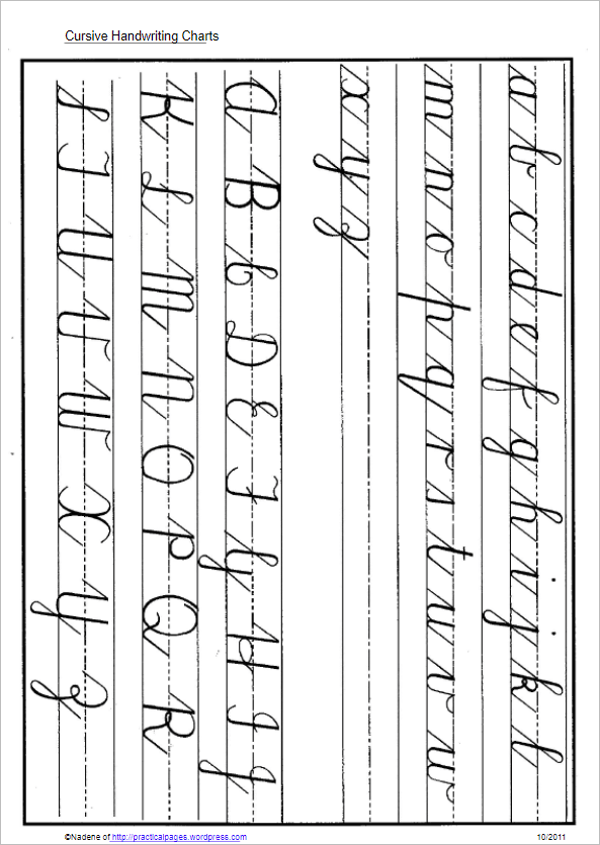 Cursive Handwriting Charts
a b c d e f g h i j k l
m n o p q r s t u v w
x y z
A B C D E F G H I J
K L M N O P Q R
S T U V W X Y Z
©Nadene of http://practicalpages.wordpress.com 10/2011